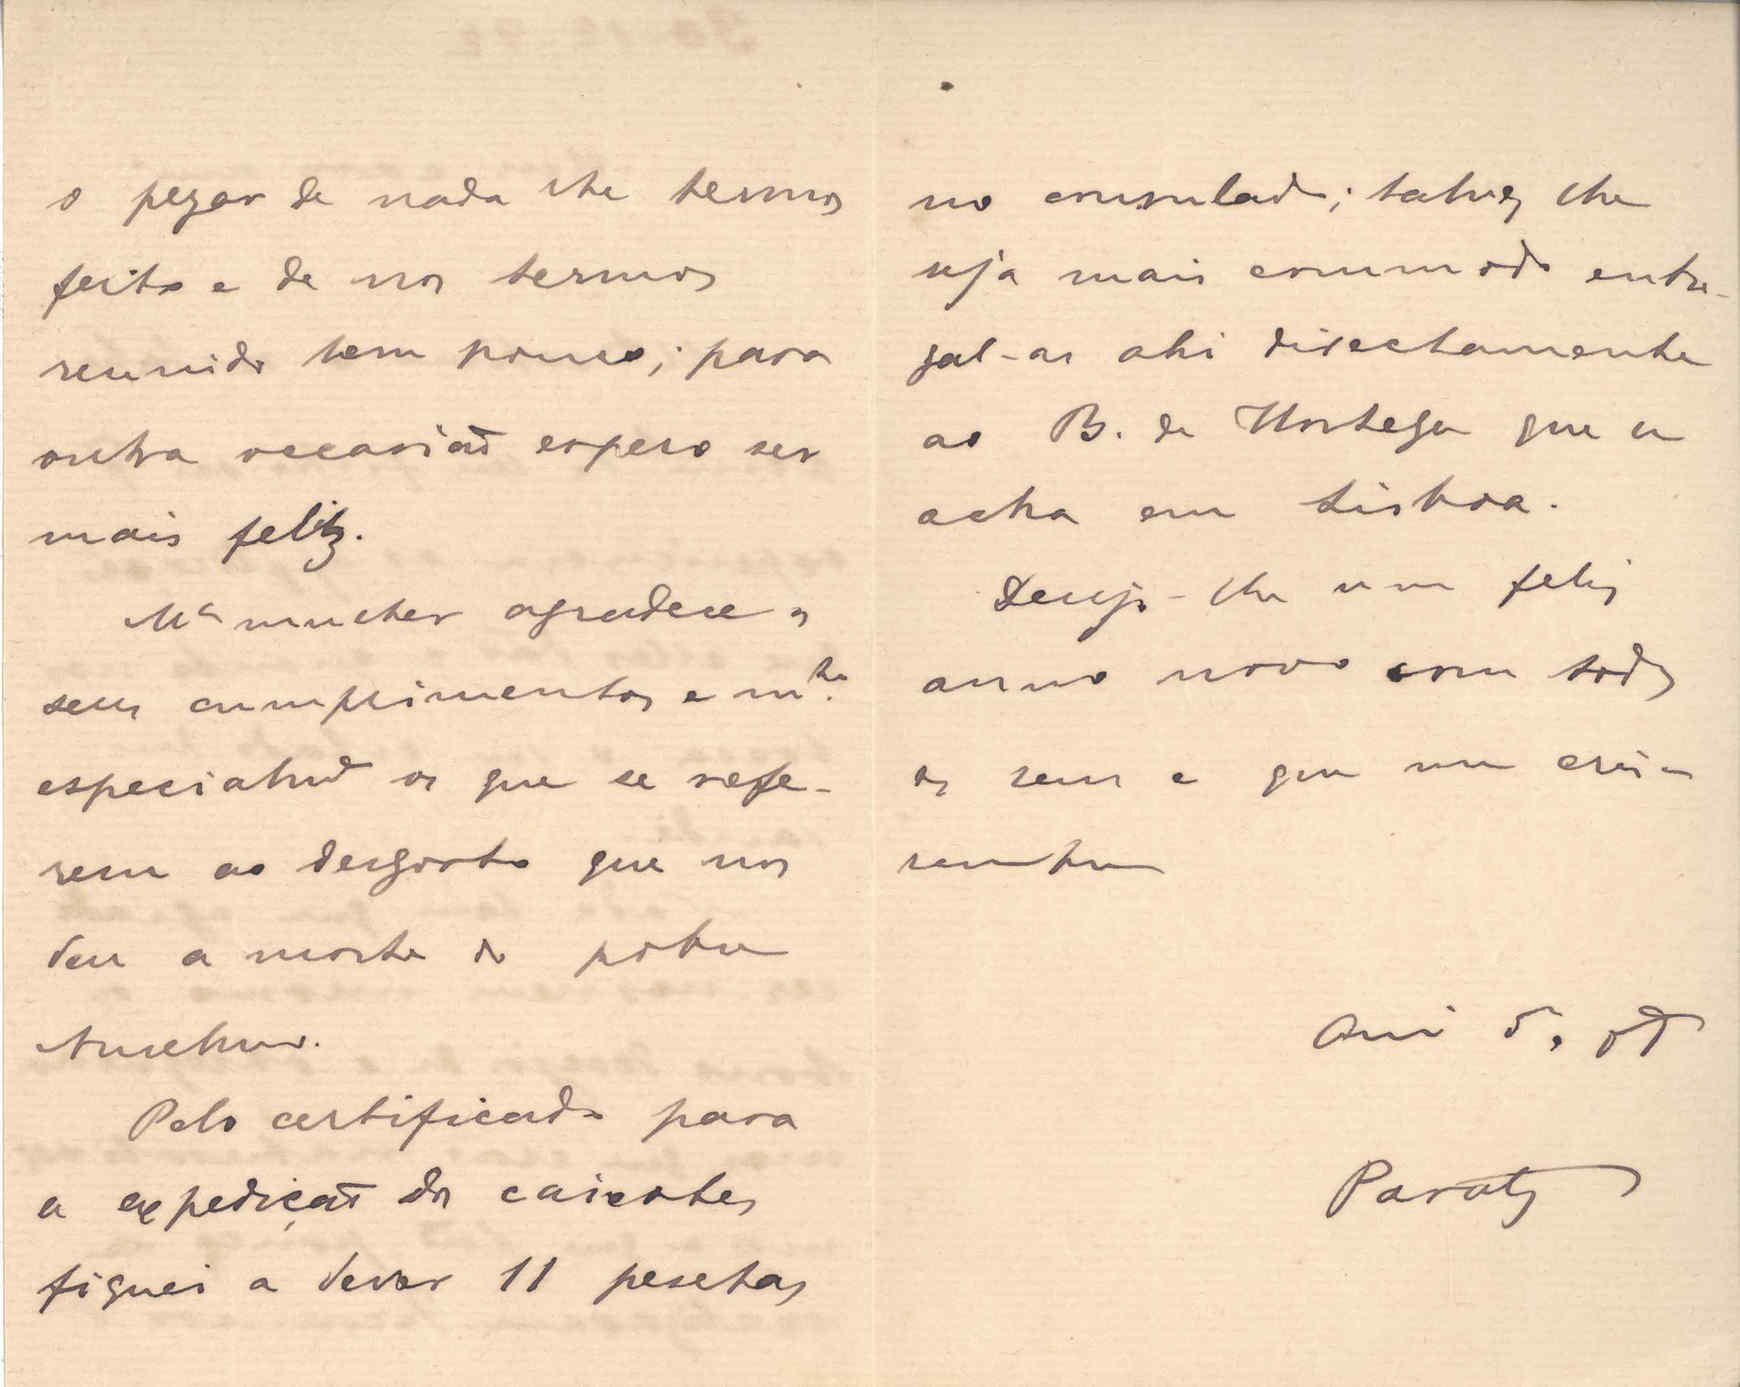 o pezar de nada lhe termos
feito e de nos termos
reunido tam pouco; para
outra occasiaõ espero ser
mais feliz.
Mª mulher agradece os
seus cumprimentos e mto.
especialmte os que se refe-
rem ao desgosto que nos
deu a morte do pobre
Anselmo.
Pelo certificado para
a expediçaõ dos caixotes
fiquei a dever 11 pesetas
no consulado; talvez lhe
seja mais commodo entre-
gal-as ahi directamente
ao B. de Hortega que se
acha em Lisboa.
Desejo-lhe um feliz
anno novo com todos
os seus e que me creia
sempre
Ami
Paraty